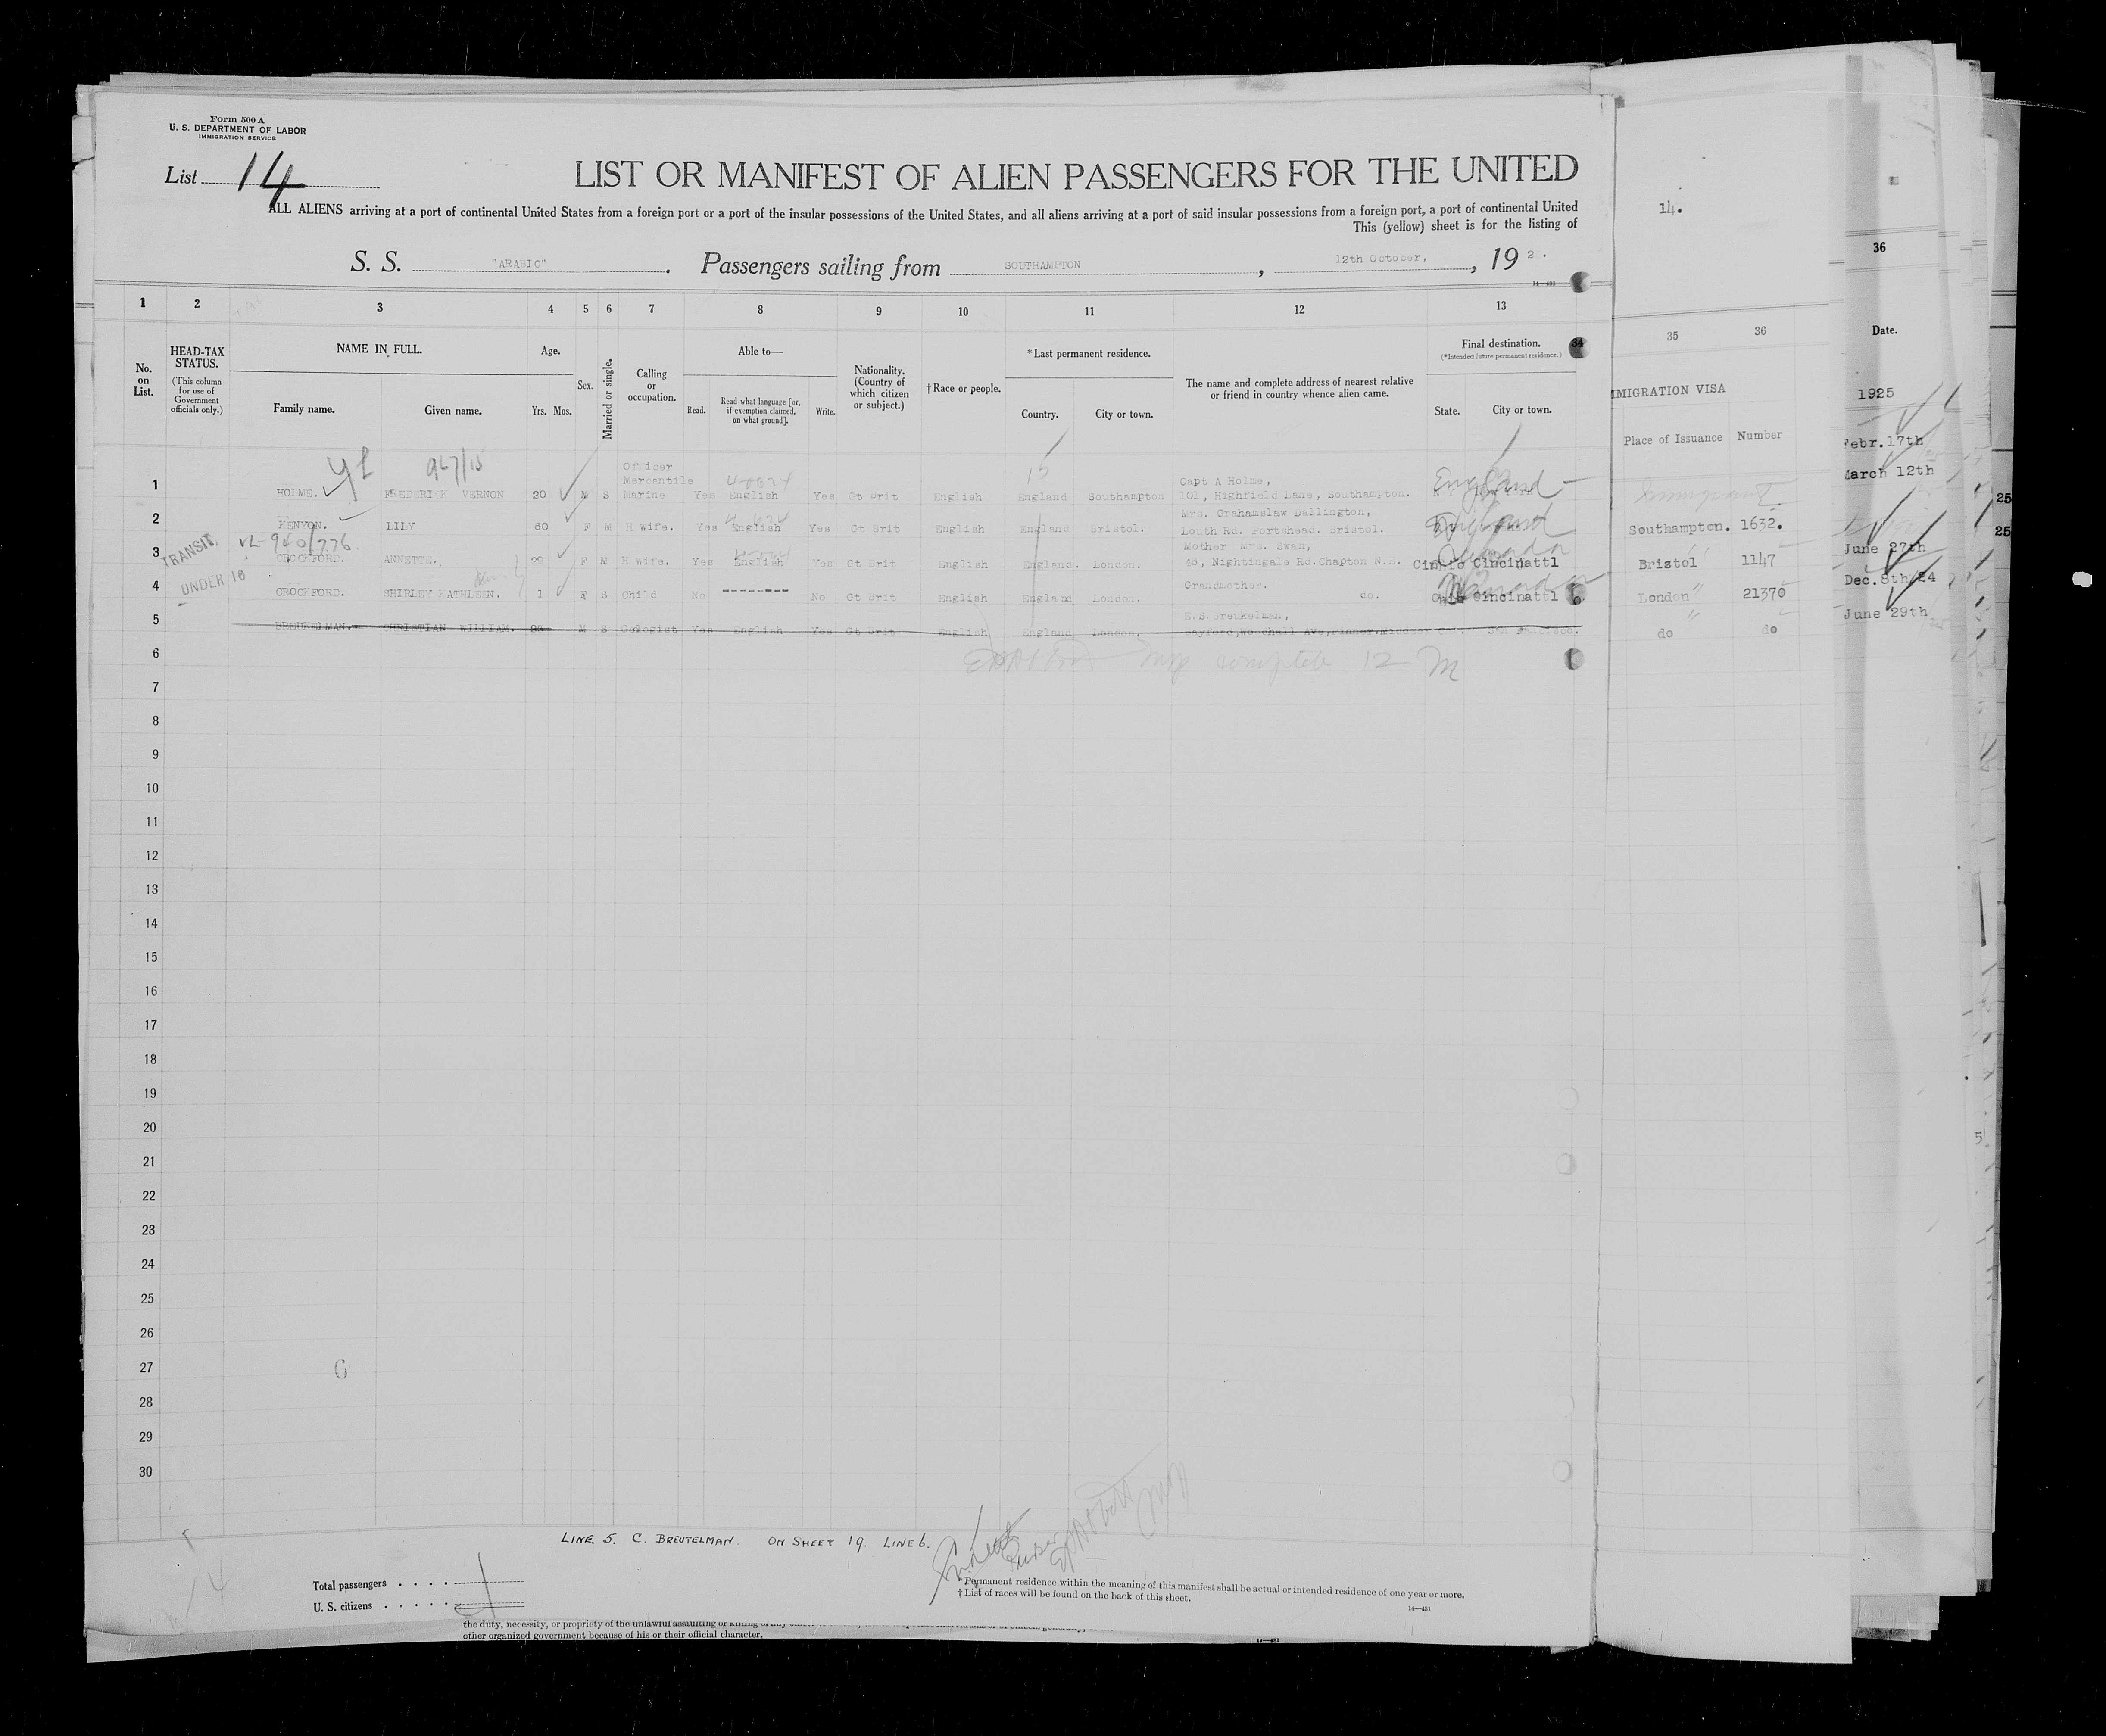 Form 500 A
U. S. DEPARTMENT OF LABOR
IMMIGRATION SERVICE
List 14
LIST OR MANIFEST OF ALIEN PASSENGERS FOR THE UNITED
ALL ALIENS arriving at a port of continental United States from a foreign port or a port of the insular possessions of the United States, and all aliens arriving at a port of said insular possessions from a foreign port, a port of continental United
This (yellow) sheet is for the listing of
S. S. "ARABIC". Passengers sailing from SOUTHAMPTON, 12th October, 192 .
14—431
1 2 3 4 5 6 7 8 9 10 11 12 13
No. on List.
HEAD-TAX STATUS.
(This column for use of Government officials only.)
NAME IN FULL.
Family name. Given name.
Age.
Yrs. Mos.
Sex.
Married or single.
Calling or occupation.
Able to—
Read. Read what language [or, if exemption claimed, on what ground]. Write.
Nationality. (Country of which citizen or subject.)
† Race or people.
* Last permanent residence.
Country. City or town.
The name and complete address of nearest relative or friend in country whence alien came.
Final destination.
(*Intended future permanent residence.)
State. City or town.
1 HOLME. FREDERICK VERNON 20 M S Officer Mercantile Marine Yes English Yes Gt Brit English England Southampton Capt A Holme, 101, Highfield Lane, Southampton. England
2 KENYON. LILY 60 F M H Wife. Yes English Yes Gt Brit English England Bristol. Mrs. Grahamslaw Dallington, Louth Rd. Portshead. Bristol. England
TRANSIT.
3 CROCKFORD. ANNETTE. 29 F M H Wife. Yes English Yes Gt Brit English England. London. Mother Mrs. Swan, 48, Nightingale Rd. Chapton N.E. Cincinattl
UNDER 16
4 CROCKFORD. SHIRLEY KATHLEEN. 1 F S Child No -------- No Gt Brit English England London. Grandmother. do. Cincinattl
5 BREUKELMAN. CHRISTIAN WILLIAM. M S Geologist Yes English Yes Gt Brit English England London. E.S. Breukelman,
6 complete 12 M
7
8
9
10
11
12
13
14
15
16
17
18
19
20
21
22
23
24
25
26
27 6
28
29
30
LINE. 5. C. BREUTELMAN. ON SHEET 19. LINE 6.
Total passengers . . . .
U. S. citizens . . . . .
* Permanent residence within the meaning of this manifest shall be actual or intended residence of one year or more.
† List of races will be found on the back of this sheet.
14—431
the duty, necessity, or propriety of the unlawful assaulting or killing of any
other organized government because of his or their official character.
14.
35 36
IMMIGRATION VISA
Place of Issuance Number
Southampton. 1632.
Bristol 1147
London 21370
do do
36
Date.
1925
Febr. 17th
March 12th
June 27th
Dec. 8th/24
June 29th
25
25